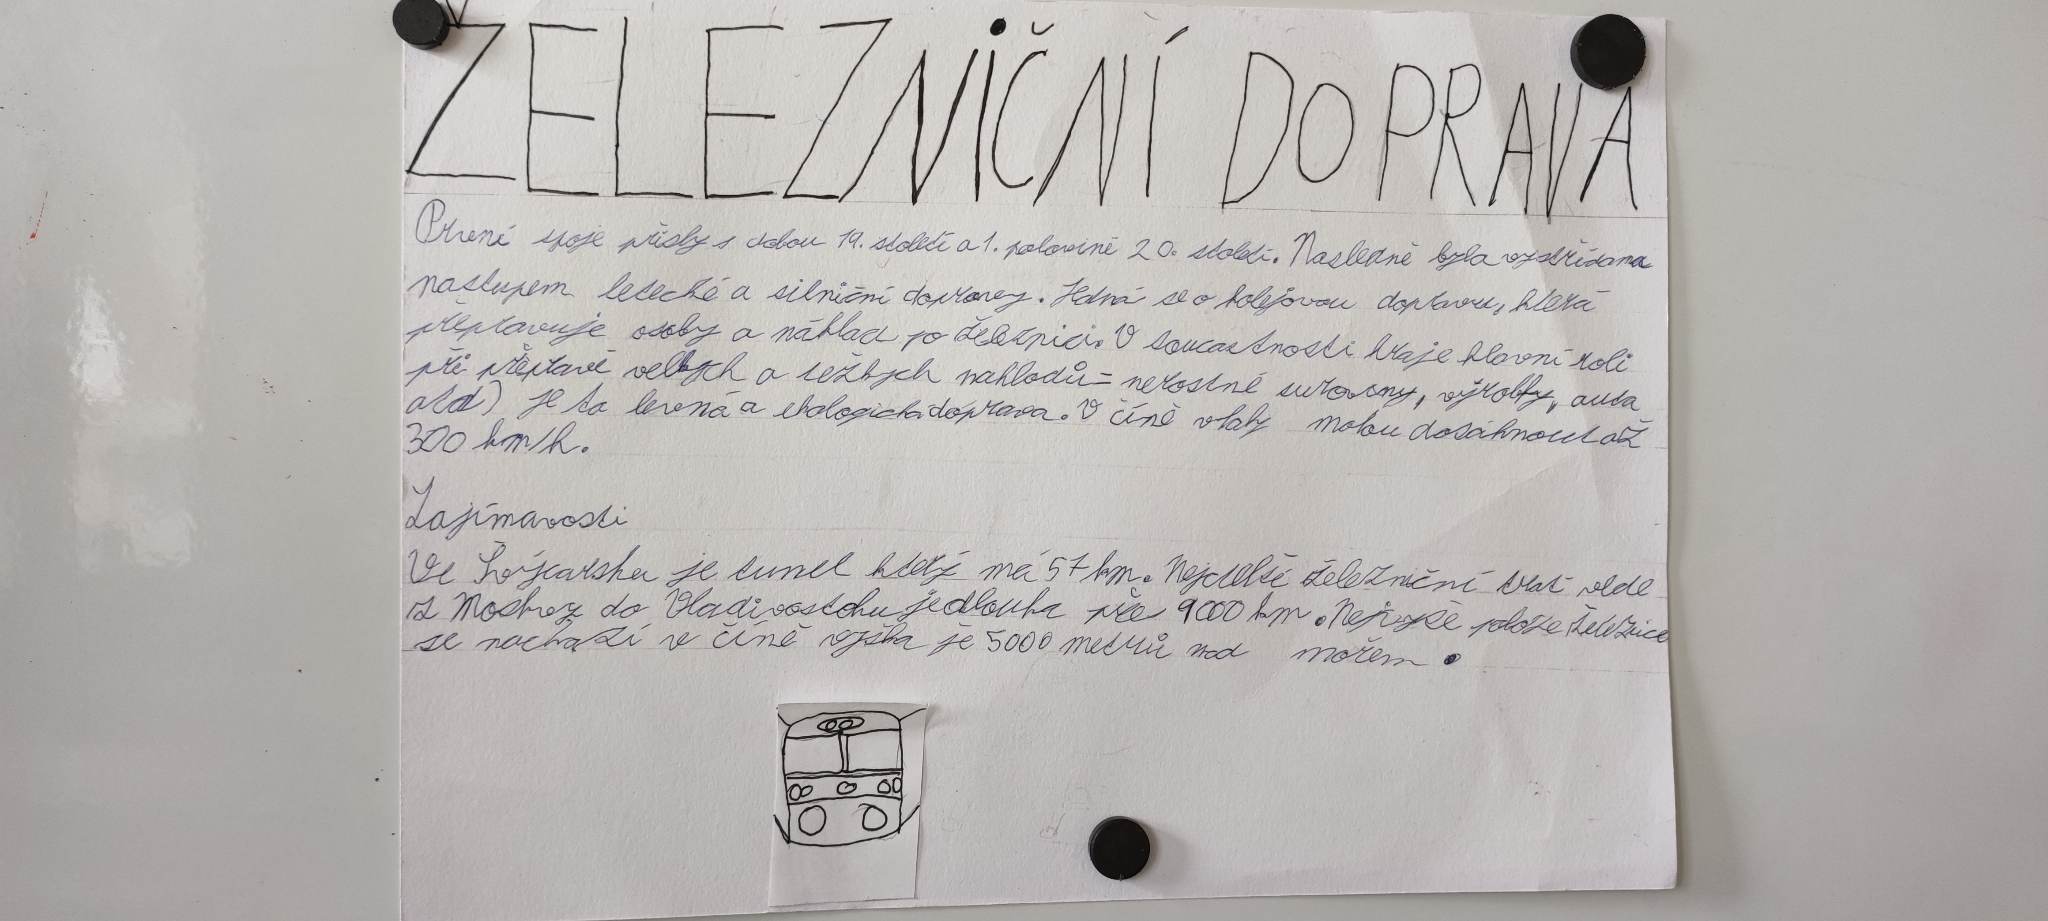 ŽELEZNIČNÍ DOPRAVA
První spoje přišly s dobou 19. století a 1. polovině 20. století. Nasledně byla vystřídana
nastupem letecké a silniční dopravy. Jedná se o kolejovou dopravu, která
přepravuje osoby a náklad po železnici. V soucastnosti hraje hlavní roli
při přepravě velkých a těžkych nakladů = nerostné surovony, výrobky, auta
atd) je to levná a ekologicka doprava. V číně vlaky mohou dosáhnout až
300 km/h.
Zajímavosti
Ve Švýcarsku je tunel který má 57 km. Nejdelší železniční trať vede
z Moskvy do Vladivostoku je dlouha pře 9000 km. Nejvyšě polože železnice
se nachází v číně vyška je 5000 metrů nad mořem.